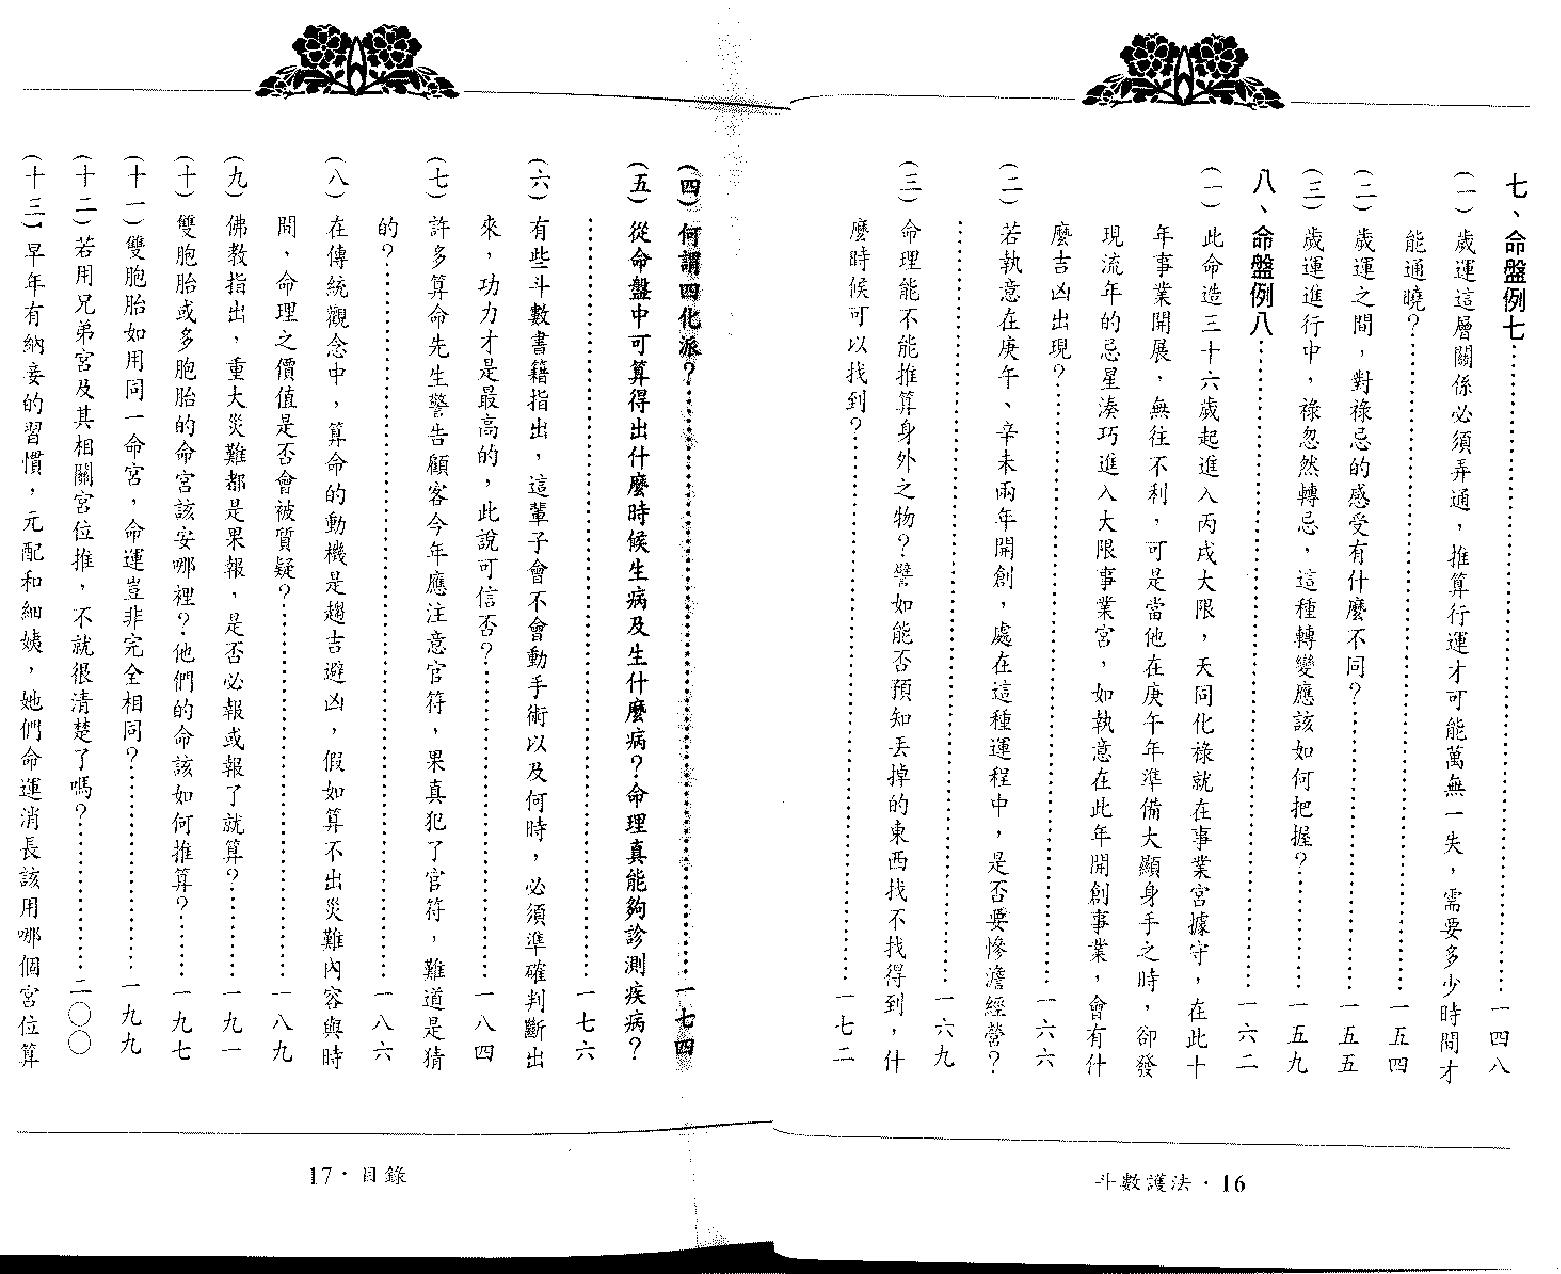 七、命盤例七……………………………一四八
(一)歲運這層關係必須弄通，推算行運才可能萬無一失，需要多少時間才
能通曉？……………………………一五四
(二)歲運之間，對祿忌的感受有什麼不同？……………………………一五五
(三)歲運進行中，祿忽然轉忌，這種轉變應該如何把握？……………一五九
八、命盤例八……………………………一六二
(一)此命造三十六歲起進入丙戌大限，天同化祿就在事業宮據守，在此十
年事業開展，無往不利，可是當他在庚午年準備大顯身手之時，卻發
現流年的忌星湊巧進入大限事業宮，如執意在此年開創事業，會有什
麼吉凶出現？……………………………一六六
(二)若執意在庚午、辛未兩年開創，處在這種運程中，是否要慘澹經營？
……………………………一六九
(三)命理能不能推算身外之物？譬如能否預知丟掉的東西找不找得到，什
麼時候可以找到？……………………………一七二
斗數護法・16
(四)何謂四化派？……………………………一七四
(五)從命盤中可算得出什麼時候生病及生什麼病？命理真能夠診測疾病？
……………………………一七六
(六)有些斗數書籍指出，這輩子會不會動手術以及何時，必須準確判斷出
來，功力才是最高的，此說可信否？……………………………一八四
(七)許多算命先生警告顧客今年應注意官符，果真犯了官符，難道是猜
的？……………………………一八六
(八)在傳統觀念中，算命的動機是趨吉避凶，假如算不出災難內容與時
間，命理之價值是否會被質疑？……………………………一八九
(九)佛教指出，重大災難都是果報，是否必報或報了就算？…………一九一
(十)雙胞胎或多胞胎的命宮該安哪裡？他們的命該如何推算？………一九七
(十一)雙胞胎如用同一命宮，命運豈非完全相同？……………………一九九
(十二)若用兄弟宮及其相關宮位推，不就很清楚了嗎？………………二〇〇
(十三)早年有納妾的習慣，元配和細姨，她們命運消長該用哪個宮位算
17・目錄